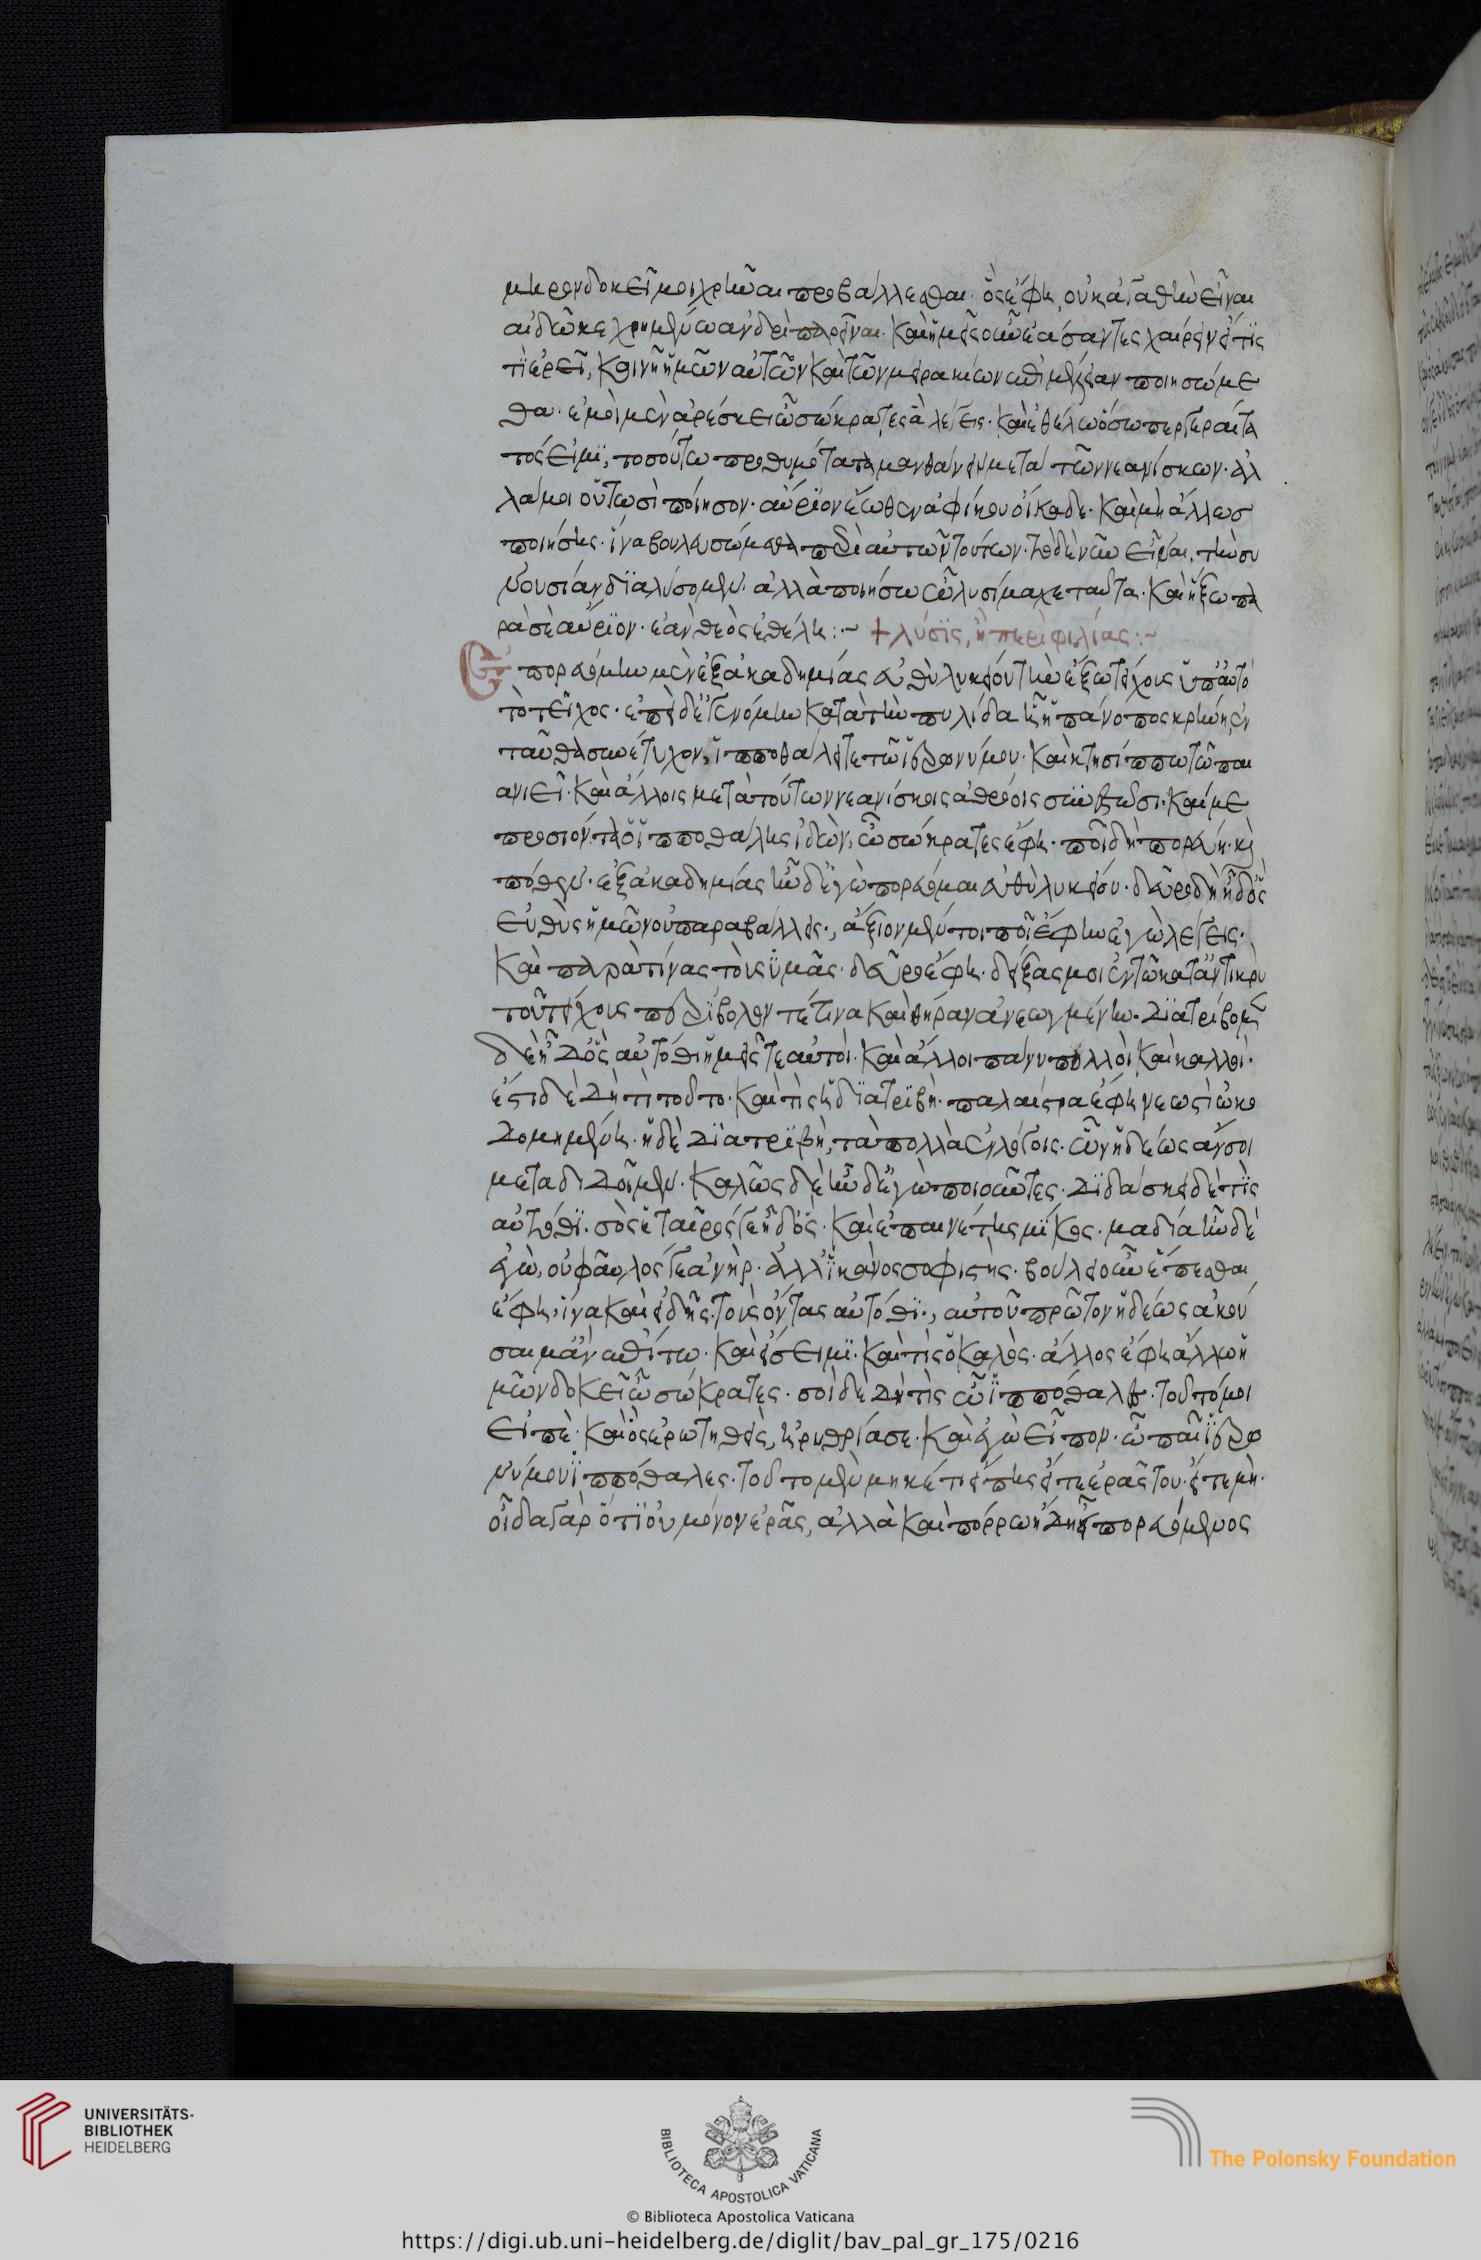 μηρον δοκεῖ μοι χρῆναι προβάλλεσθαι· ὃς ἔφη, οὐκ ἀγαθὴν εἶναι
αἰδῶ κεχρημένω ἀνδρὶ παρεῖναι· καὶ ἡμεῖς οὖν ἐάσαντες χαίρειν εἴ τίς
τι ἐρεῖ, κοινῇ ἡμῶν αὐτῶν καὶ τῶν μειρακίων ἐπιμέλειαν ποιησώμε
θα· ἐμοὶ μὲν ἀρέσκει ὦ σώκρατες ἃ λέγεις· καὶ ἐθέλω ὅσωπερ γεραίτα
τός εἰμϊ, τοσούτω προθυμότατα μανθάνειν μετὰ τῶν νεανίσκων· ἀλ
λά μοι οὑτωσὶ πόιησον· αὔριον ἕωθεν ἀφίκου οἴκαδε· καὶ μὴ ἄλλως
ποιήσης· ἵνα βουλευσώμεθα περὶ αὐτῶν τούτων· τὸ δὲ νῦν εἶναι, τὴν συ
νουσίαν διαλύσομεν· ἀλλὰ ποιήσω ὦ λυσίμαχε ταῦτα· καὶ ἥξω πα
ρὰ σὲ αὔριον· ἐὰν θεὸς ἐθέλη :~ + λύσϊς, ἢ περὶ φιλίας :~
Ἐπορευόμην μὲν ἐξ ἀκαδημίας εὐθὺ λυκείου τὴν ἔξω τείχους ὑπ' αὐτὸ
τὸ τεῖχος· ἐπεὶ δ' ἐγενόμην κατὰ τὴν πυλίδα ᾗ ἡ πάνοπος κρήνη, ἐν
ταῦθα συνέτυχον, ἱπποθάλει τε τῶ ἱερωνύμου· καὶ κτησίππω τῶ παι
ανιεῖ· καὶ ἄλλοις μετὰ τούτων νεανίσκοις ἀθρόοις συνεστῶσι· καί με
προσιόντα ὁ ἱπποθάλης ἰδὼν, ὦ σώκρατες ἔφη· ποῖ δὴ πορεύη· καὶ
πόθεν· ἐξ ἀκαδημίας ἦν δ' ἐγὼ πορεύομαι εὐθὺ λυκείου· δεῦρο δὴ ἦ δ' ὃς
εὐθὺς ἡμῶν οὐ παραβάλλεις·, ἄξιον μέντοι ποῖ ἔφην ἐγὼ λέγεις·
καὶ παρὰ τίνας τοὺς ὑμᾶς· δεῦρο ἔφη· δείξας μοι ἐν τῶ καταντικρὺ
τοῦ τείχους περίβολόν τέ τινα καὶ θύραν ἀνεωγμένην· διατρίβομεν
δὲ ἦ δ' ὃς αὐτόθι ἡμεῖς τε αὐτοὶ· καὶ ἄλλοι πάνυ πολλοὶ καὶ καλοί·
ἔστι δὲ δὴ τί τοῦτο· καὶ τίς ἡ διατριβὴ· παλαίστρα ἔφη νεωστὶ ὠκο
δομημένη· ἡ δὲ διατριβὴ, τὰ πολλὰ ἐν λόγοις· ὧν ἡδέως ἄν σοι
μεταδιδοῖμεν· καλῶς δὲ ἦν δ' ἐγὼ ποιοῦντες· διδάσκει δὲ τίς
αὐτόθϊ· σὸς ἑταῖρός γε ἦ δ' ὃς· καὶ ἐπαινέτης μίκκος· μὰ δία ἦν δὲ
ἐγὼ, οὐ φαῦλός γε ἀνὴρ· ἀλλ' ἱκανὸς σοφιστὴς· βούλει οὖν ἕπεσθαι
ἔφη, ἵνα καὶ εἰδῆς τοὺς ὄντας αὐτόθϊ·, αὐτοῦ πρῶτον ἡδέως ἀκού
σαιμ' ἂν ἐπὶ τω· καὶ εἴσειμϊ· καὶ τίς ὁ καλὸς· ἄλλος ἔφη ἄλλω ἡ
μῶν δοκεῖ ὦ σώκρατες· σοὶ δὲ δὴ τίς ὦ ἱππόθαλες· τοῦτό μοι
εἰπὲ· καὶ ὃς ἐρωτηθεὶς, ἠρυθρίασε· καὶ ἐγὼ εἶπον· ὦ παῖ ἱερω
νύμου ἱππόθαλες· τοῦτο μὲν μηκέτι εἴπης εἴτε ἐρᾶς του· εἴτε μὴ·
οἶδα γὰρ ὅτι οὐ μόνον ἐρᾶς, ἀλλὰ καὶ πόρρω ἤδη εἶ πορευόμενος
UNIVERSITÄTS-
BIBLIOTHEK
HEIDELBERG
BIBLIOTECA APOSTOLICA VATICANA
The Polonsky Foundation
© Biblioteca Apostolica Vaticana
https://digi.ub.uni-heidelberg.de/diglit/bav_pal_gr_175/0216